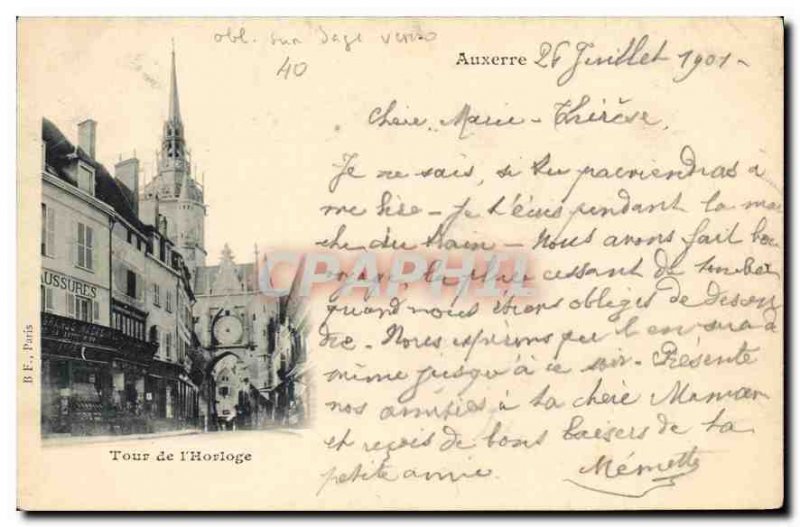 obl. sur Sage verso
40
Auxerre 26 Juillet 1901 -
Chère Marie-Thérèse,
Je ne sais, si tu parviendras à
me lire - Je t'écris pendant la mar
che du train - Nous avons fait bon
voyage, la pluie cessant de tomber
quand nous étions obligés de descen
dre. Nous espérons qu'il en sera de
même jusqu'à ce soir. Présente
nos amitiés à ta chère Maman
et reçois de bons baisers de ta
petite amie.
Mémette
CPARHIL
AUSSURES
B F., Paris
Tour de l'Horloge